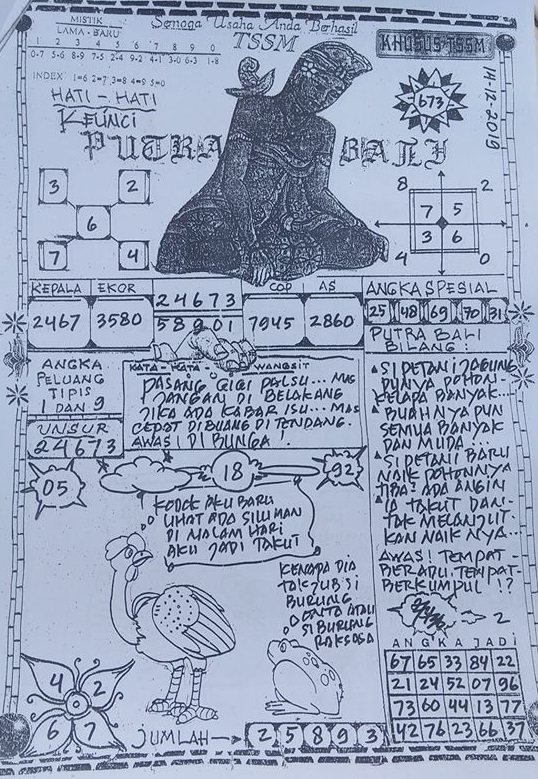 Semoga Usaha Anda Berhasil
TSSM
MISTIK
LAMA - BARU
1 2 3 4 5 6 7 8 9 0
0-7 5-6 8-9 7-5 2-4 9-2 4-1 3-0 6-3 1-8
INDEX 1=6 2=7 3=8 4=9 5=0
KHUSUS TSSM
14-12-2019
HATI - HATI
KEUNCI
673
PUTRA BALI
3 2
6
7 4
8 2
7 5
3 6
4 0
KEPALA EKOR
2467 3580
24673
58901
COP AS
7945 2860
ANGKA SPESIAL
25 48 69 70 31
ANGKA
PELUANG
TIPIS
1 DAN 9
UNSUR
24673
KATA - KATA WANGSIT
PASANG GIGI PALSU... MAS
JANGAN DI BELAKANG
JIKA ADA KABAR ISU... MAS
CEPAT DIBUANG DI TENDANG.
AWAS! DI BUNGA!
PUTRA BALI
BILANG:
SI PETANI JAGUNG
PUNYA POHON
KELAPA BANYAK...
BUAHNYA PUN
SEMUA BANYAK
DAN MUDA...
SI PETANI BARU
NAIK POHONNYA
TIBA2 ADA ANGIN
IA TAKUT DAN
TAK MELANJUT
KAN NAIKNYA...
AWAS! TEMPAT
BERADU, TEMPAT
BERKUMPUL!?
05
18
92
KODOK AKU BARU
LIHAT ADA SILUMAN
DI MALAM HARI
AKU JADI TAKUT
KENAPA DIA
TAKJUB SI
BURUNG
ONTA ATAU
SI BURUNG
RAKSASA
2
4 2
6 7
JUMLAH
2 5 8 9 3
ANGKA JADI
67 65 33 84 22
21 24 52 07 96
73 60 44 13 77
42 76 23 66 37